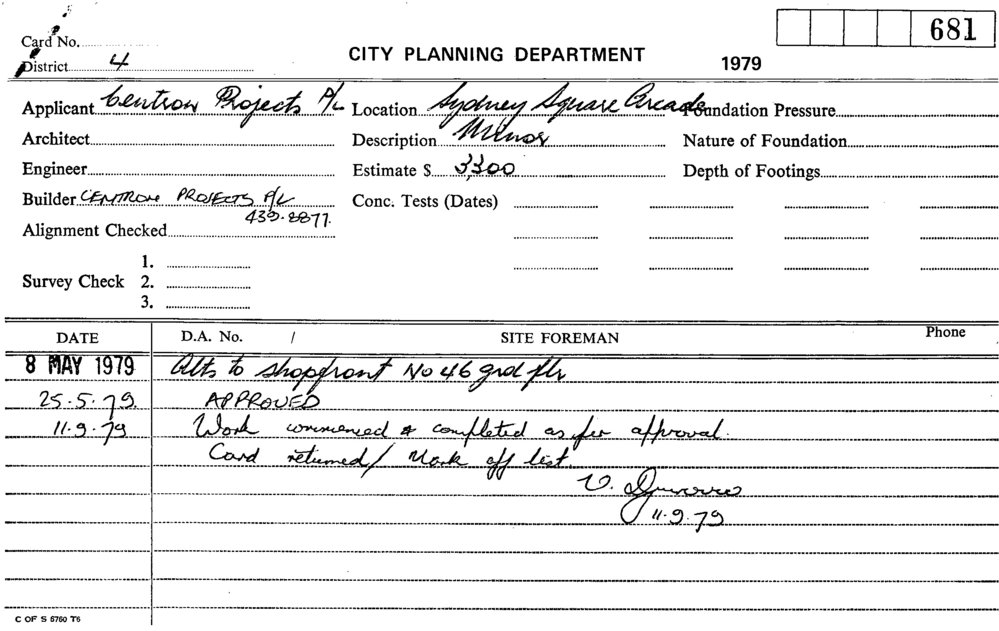 681
Card No.
District 4
CITY PLANNING DEPARTMENT
1979
Applicant Centron Projects P/L Location Sydney Square Arcade Foundation Pressure
Architect Description Minor Nature of Foundation
Engineer Estimate $ 3300 Depth of Footings
Builder CENTRON PROJECTS P/L Conc. Tests (Dates)
439.8877.
Alignment Checked
1.
Survey Check 2.
3.
DATE D.A. No. / SITE FOREMAN Phone
8 MAY 1979 Alts to shopfront No 46 grd flr
25.5.79. APPROVED
11.9.79 Work commenced & completed as per approval.
Card returned / Mark off list.
V.
11.9.79
C OF S 6760 T6